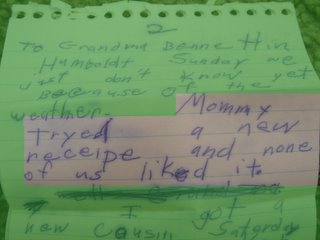 2
To Grandma Bonne H in
Humboldt Sunday we
just don't know yet
Because of the
weather. Mommy
Tryed a new
receipe and none
of us liked it.
I got a
new cousin Saturday